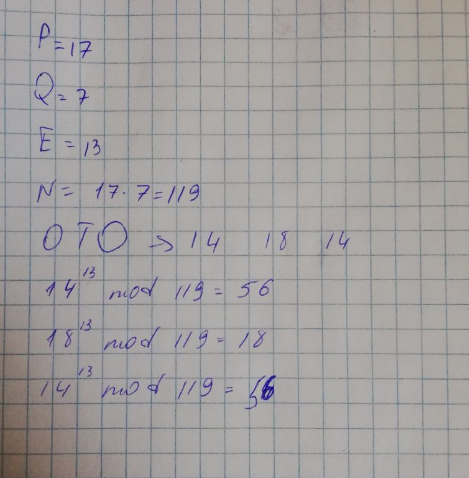 P=17
Q=7
E=13
N= 17·7=119
OTO → 14 18 14
14¹³ mod 119 = 56
18¹³ mod 119 = 18
14¹³ mod 119 = 56